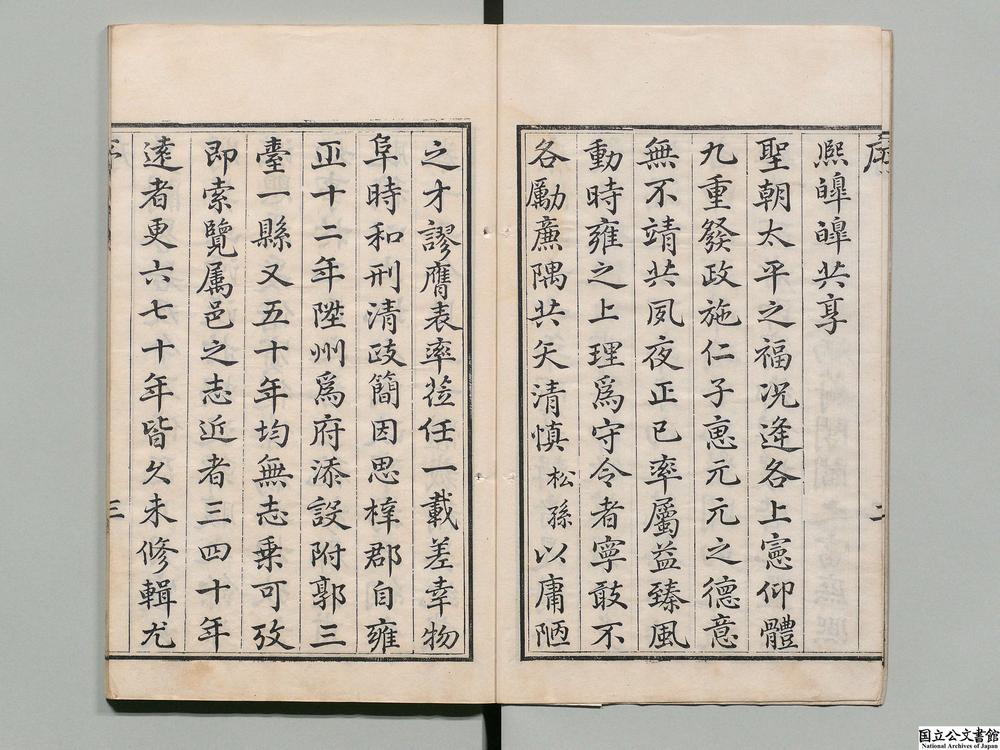 熈皥皥共享
聖朝太平之福况逢各上憲仰體
九重發政施仁子惠元元之德意
無不靖共夙夜正已率屬益臻風
動時雍之上理爲守令者寧敢不
各勵亷隅共矢清慎松孫以庸陋
之才謬膺表率莅任一載差幸物
阜時和刑清政簡因思梓郡自雍
正十二年陞州爲府添設附郭三
臺一縣又五十年均無志乗可攷
即索覽属邑之志近者三四十年
逺者更六七十年皆久未修輯尤
序
二
三
国立公文書館
National Archives of Japan